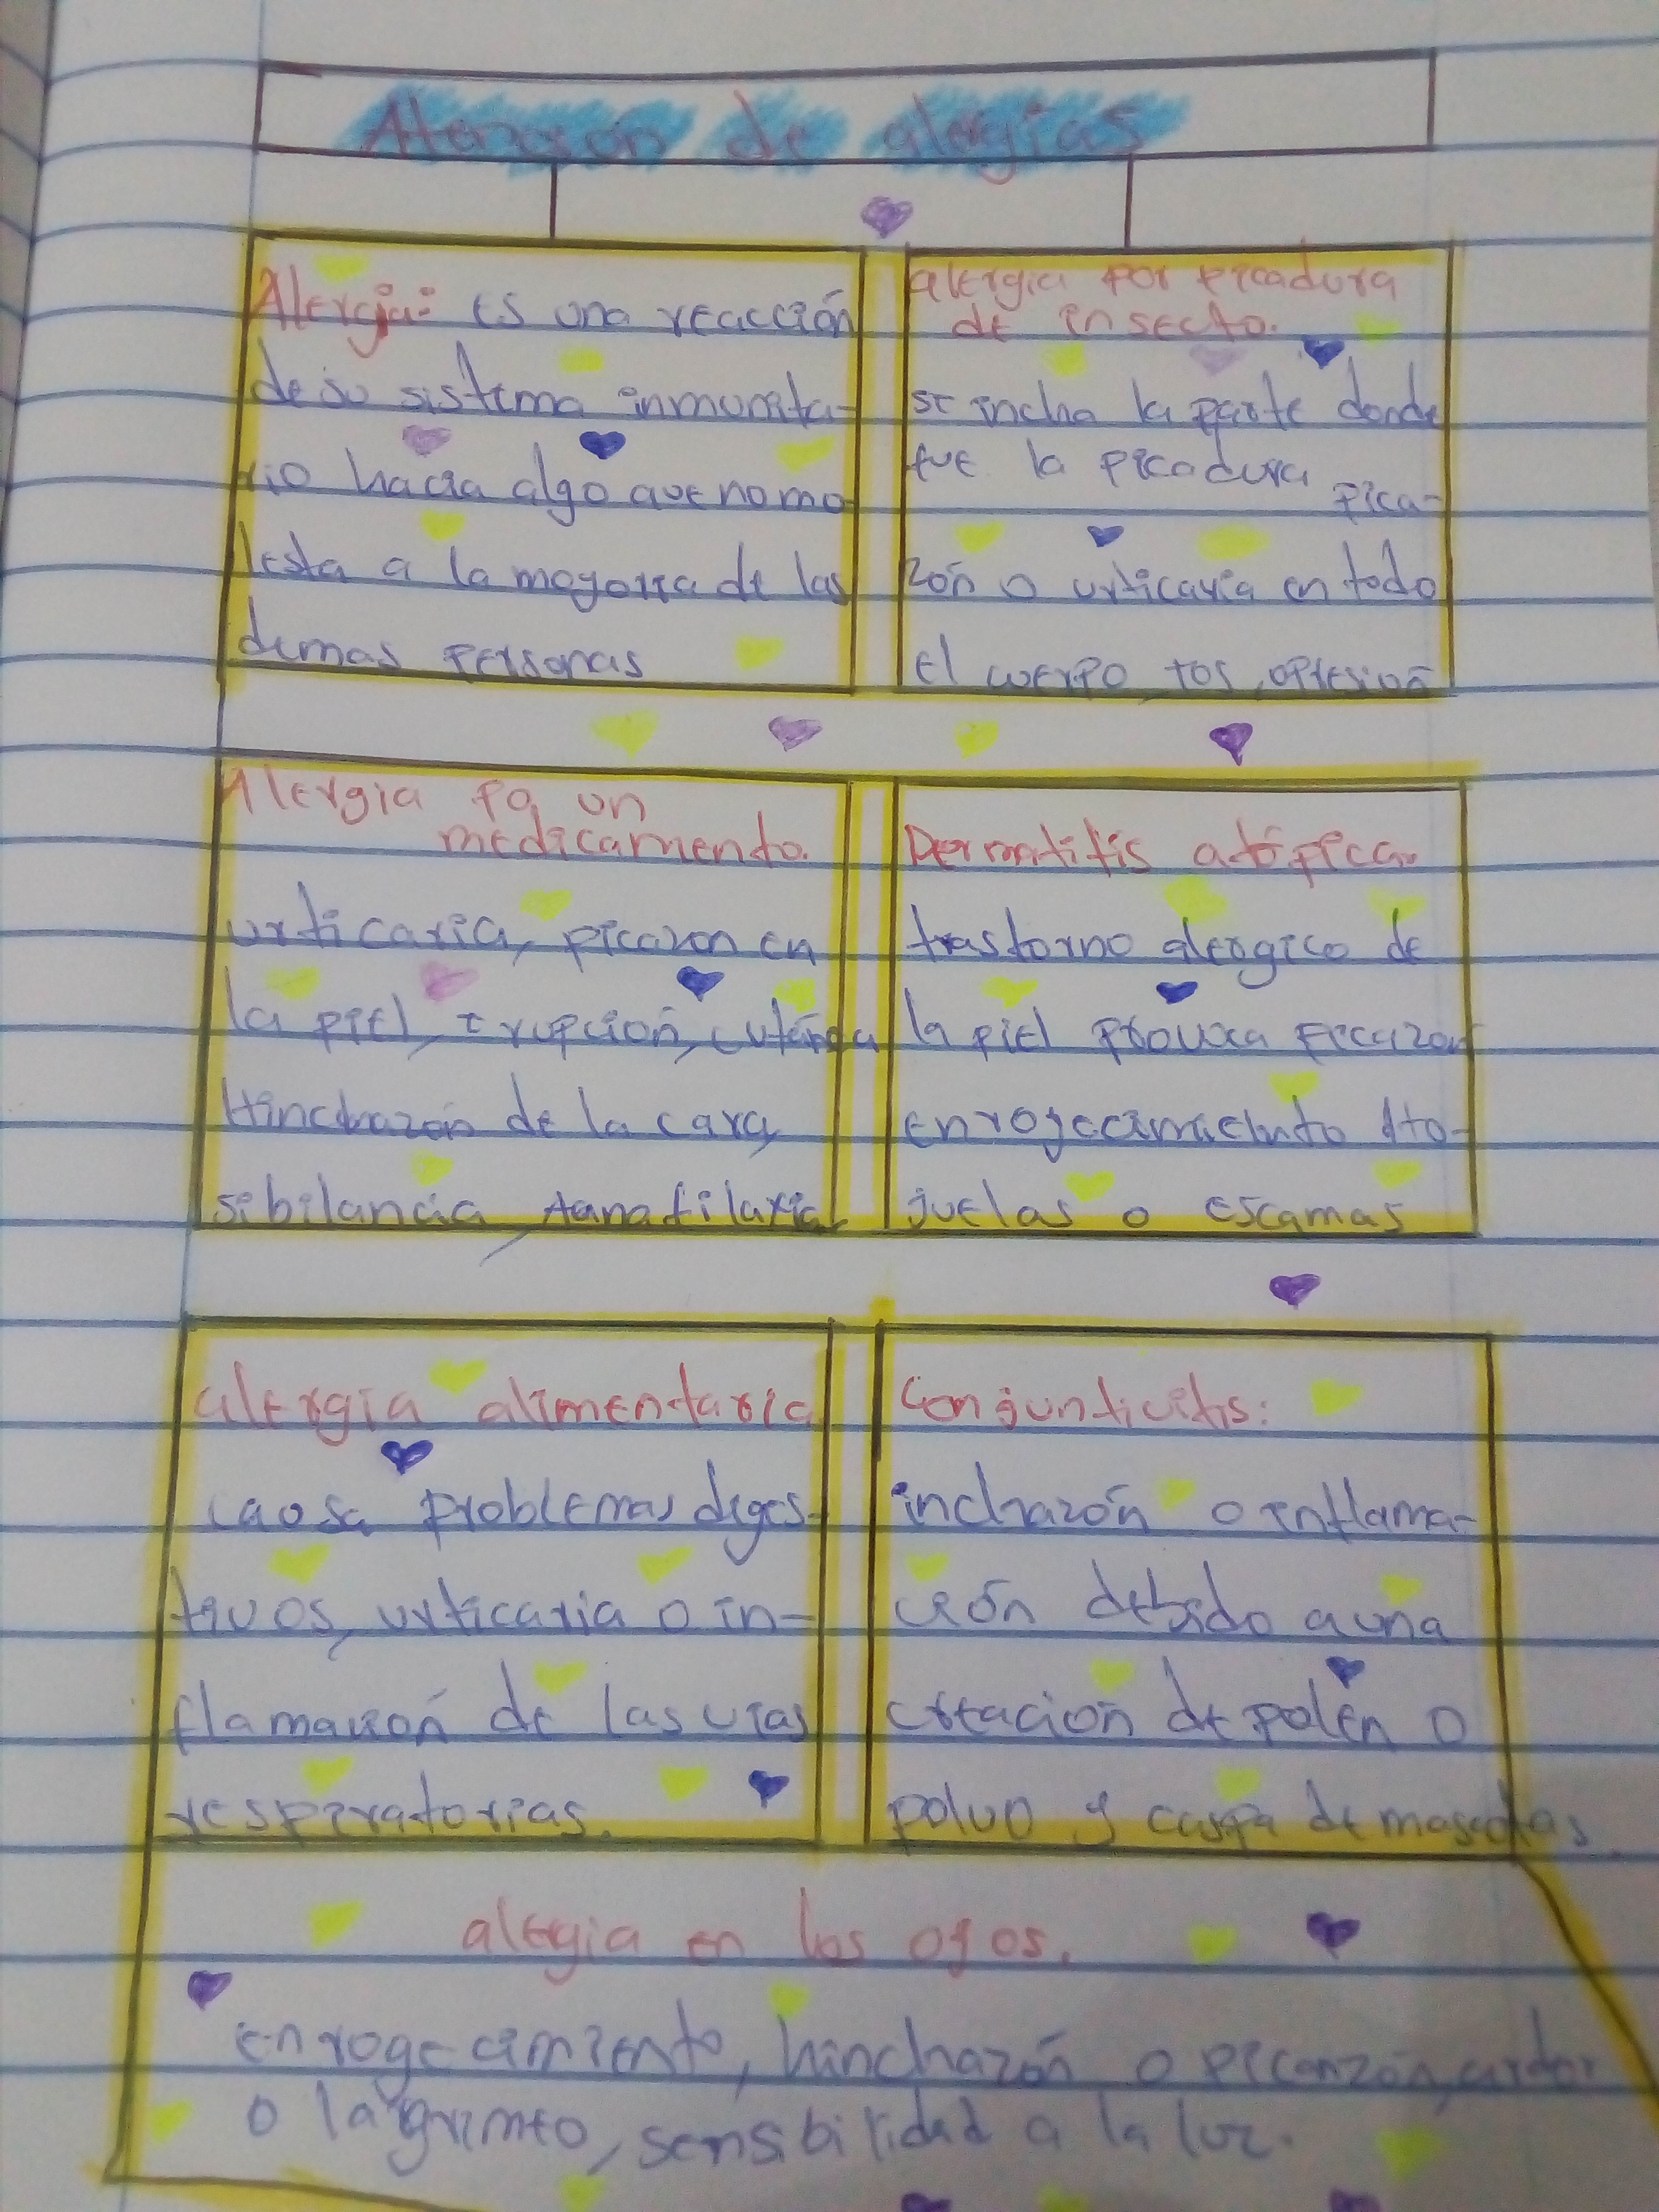 Atención de alergias
Alergia: es una reacción
de su sistema inmunita-
rio hacia algo que no mo
lesta a la mayoria de las
demas personas
alergia por picadura
de insecto.
se incha la parte donde
fue la picadura pica-
zón o urticaria en todo
el cuerpo, tos, opresión
Alergia pa un
medicamento.
urticaria, picazon en
la piel, erupción, cutánea
Hinchazón de la cara,
sibilancia, Aanafilaxia
Dermatitis atópica.
trastorno alergico de
la piel provoca picazon
enrojecimiento Ho-
juelas o escamas
alergia alimentaria
caosa problemas diges-
tivos, urticaria o in-
flamación de las vias
respiratorias.
Conjuntivitis:
inchazón o inflama-
ción debido a una
de polén o
polvo y caspa de mascotas.
alergia en los ojos.
enrogecimiento, hinchazón o picanzón, ardor
o lagrimeo, sensibilidad a la luz.